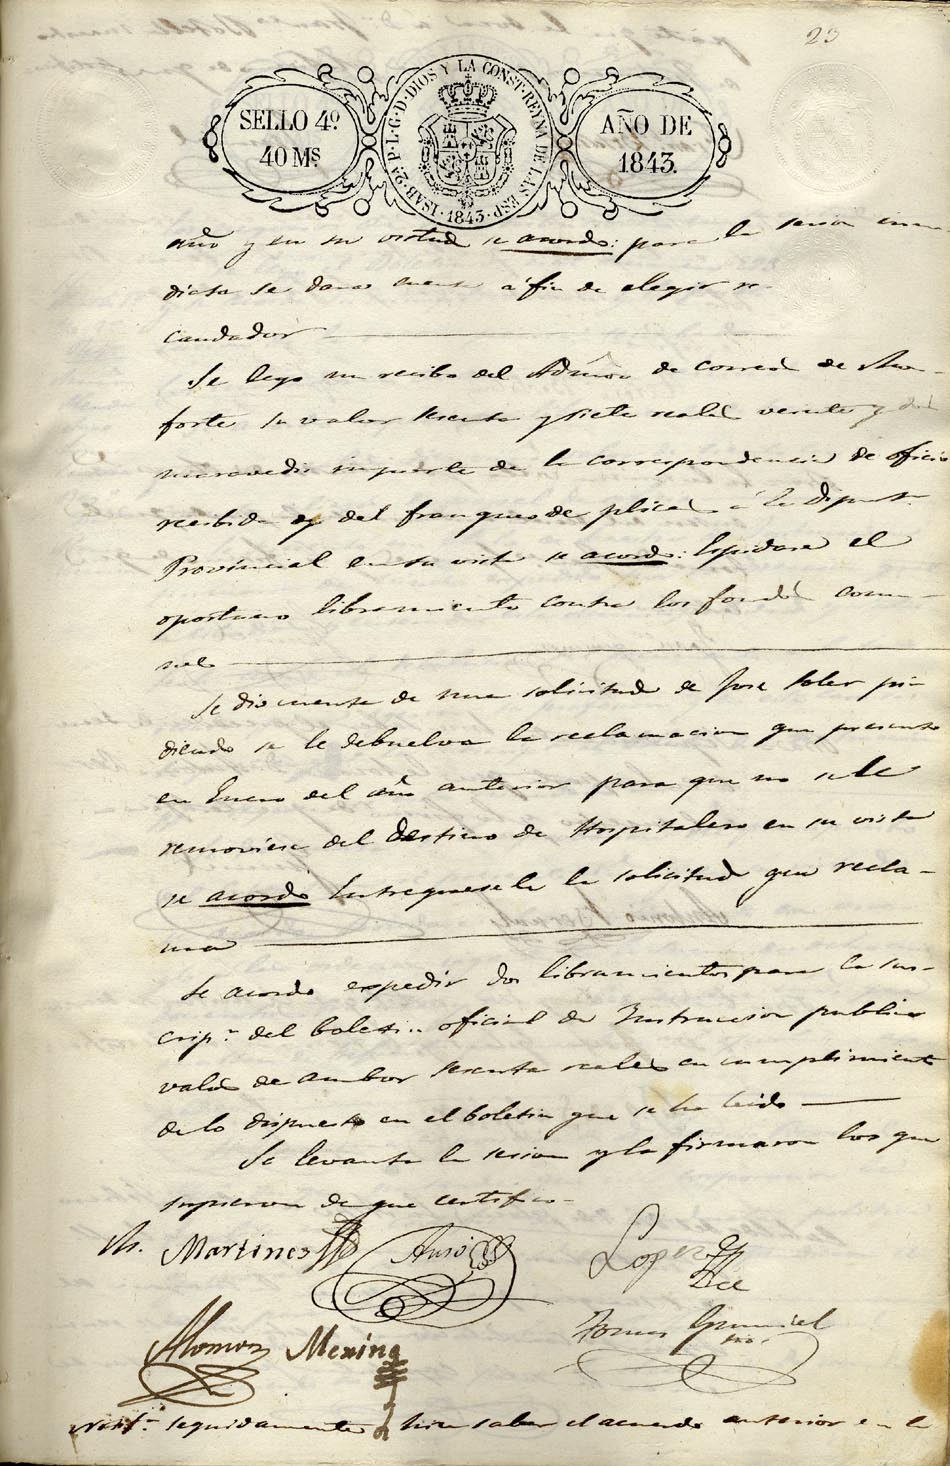 23
SELLO 4º
40 Mˢ
ISAB. 2ª P. L. G. D. DIOS Y LA CONST. REYNA DE LAS ESP. 1843.
AÑO DE
1843.
año y en su virtud se acordó: para la sesion inme-
diata se dará cuenta á fin de elegir re-
caudador
Se leyo un recibo del Admor de correos de Mon-
forte su valor sesenta y siete reales veinte y dos
maravedis importe de la correspondencia de oficio
recibida y del franqueo de plicas á la Diputn
Provincial en su vista se acordó: Espidase el
oportuno libramiento contra los fondos comu-
nes
Se dio cuenta de una solicitud de Jose Soler pi-
diendo se le debuelva la reclamacion que presento
en Enero del año anterior para que no se le
removiese del destino de Hospitalero en su vista
se acordó Entreguesele la solicitud que recla-
ma
Se acordo expedir dos libramientos para la sus-
cripn. del boletin oficial de Instruccion publica
valor de ambos sesenta reales en cumplimiento
de lo dispuesto en el boletin que se ha leido
Se levanto la sesion y la firmaron los que
supieron de que certifico
M. Martines
Ausó
Lopez
Alomon Mexina
Tomas
seguidamente hice saber el acuerdo anterior en la